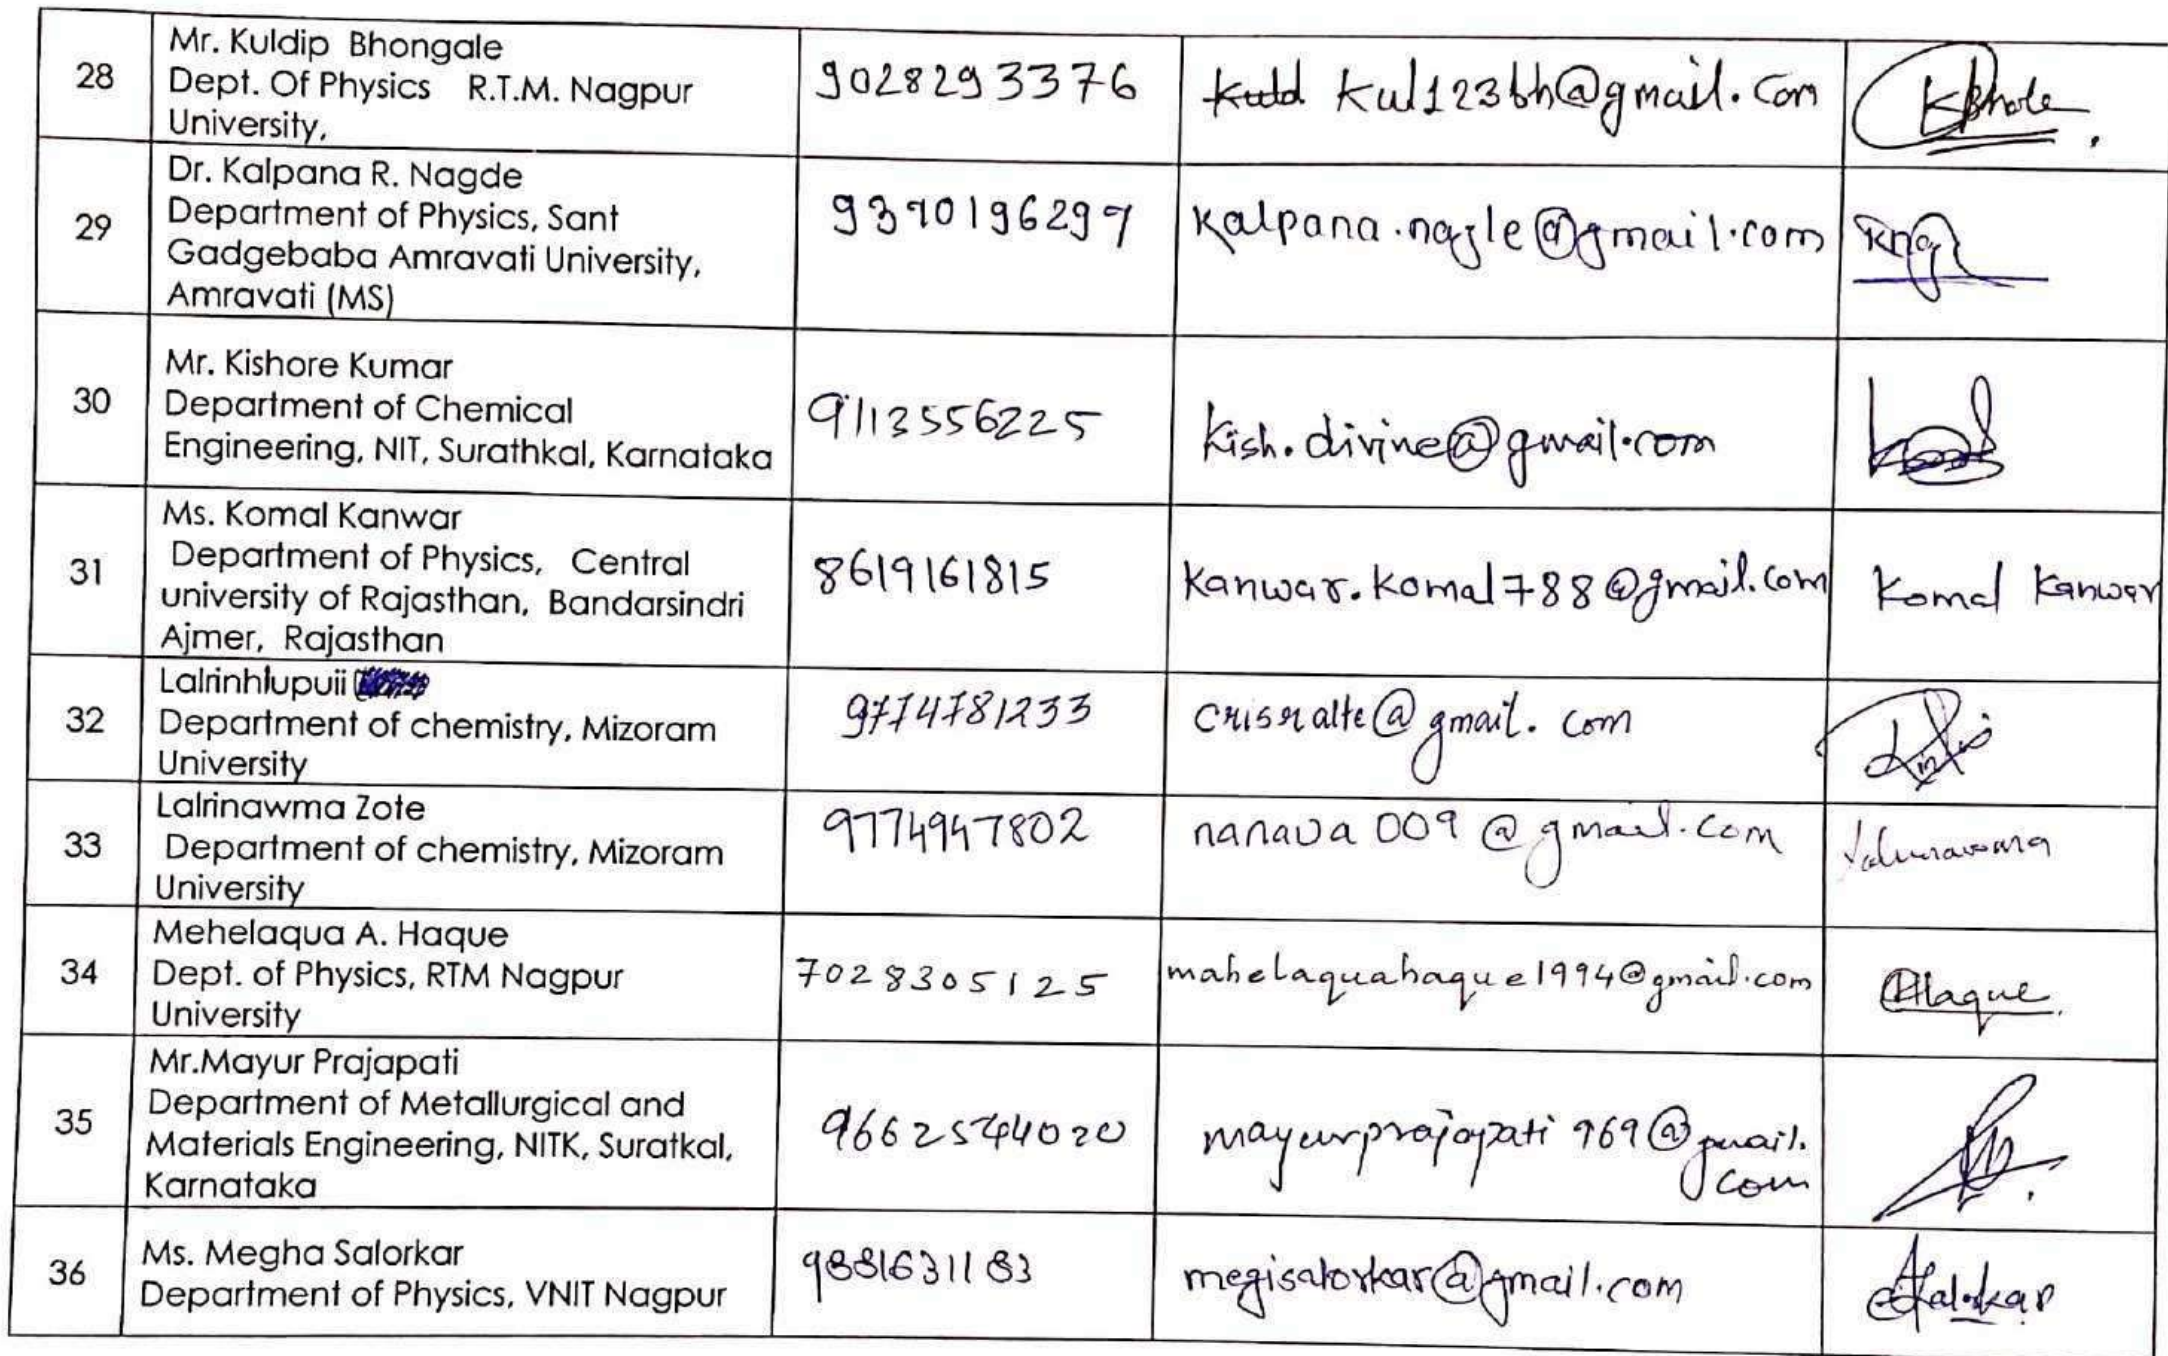 28
Mr. Kuldip Bhongale
Dept. Of Physics R.T.M. Nagpur
University,
9028293376
kul123bh@gmail.com
29
Dr. Kalpana R. Nagde
Department of Physics, Sant
Gadgebaba Amravati University,
Amravati (MS)
9370196297
kalpana.nagle@gmail.com
30
Mr. Kishore Kumar
Department of Chemical
Engineering, NIT, Surathkal, Karnataka
9113556225
kish.divine@gmail.com
31
Ms. Komal Kanwar
Department of Physics, Central
university of Rajasthan, Bandarsindri
Ajmer, Rajasthan
8619161815
kanwar.komal788@gmail.com
Komal Kanwar
32
Lalrinhlupuii
Department of chemistry, Mizoram
University
9774781233
crisralte@gmail.com
33
Lalrinawma Zote
Department of chemistry, Mizoram
University
9774947802
nanava009@gmail.com
34
Mehelaqua A. Haque
Dept. of Physics, RTM Nagpur
University
7028305125
mahelaquahaque1994@gmail.com
Haque
35
Mr.Mayur Prajapati
Department of Metallurgical and
Materials Engineering, NITK, Suratkal,
Karnataka
9662544020
mayurprajapati969@gmail.
com
36
Ms. Megha Salorkar
Department of Physics, VNIT Nagpur
9881631183
megisalorkar@gmail.com